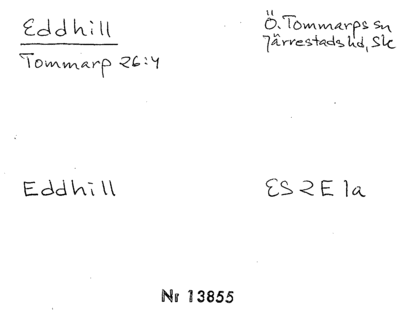 Eddhill
Ö. Tommarps sn
Järrestads hd, Sk
Tommarp 26:4
Eddhill
ES 2 E 1a
Nr 13855